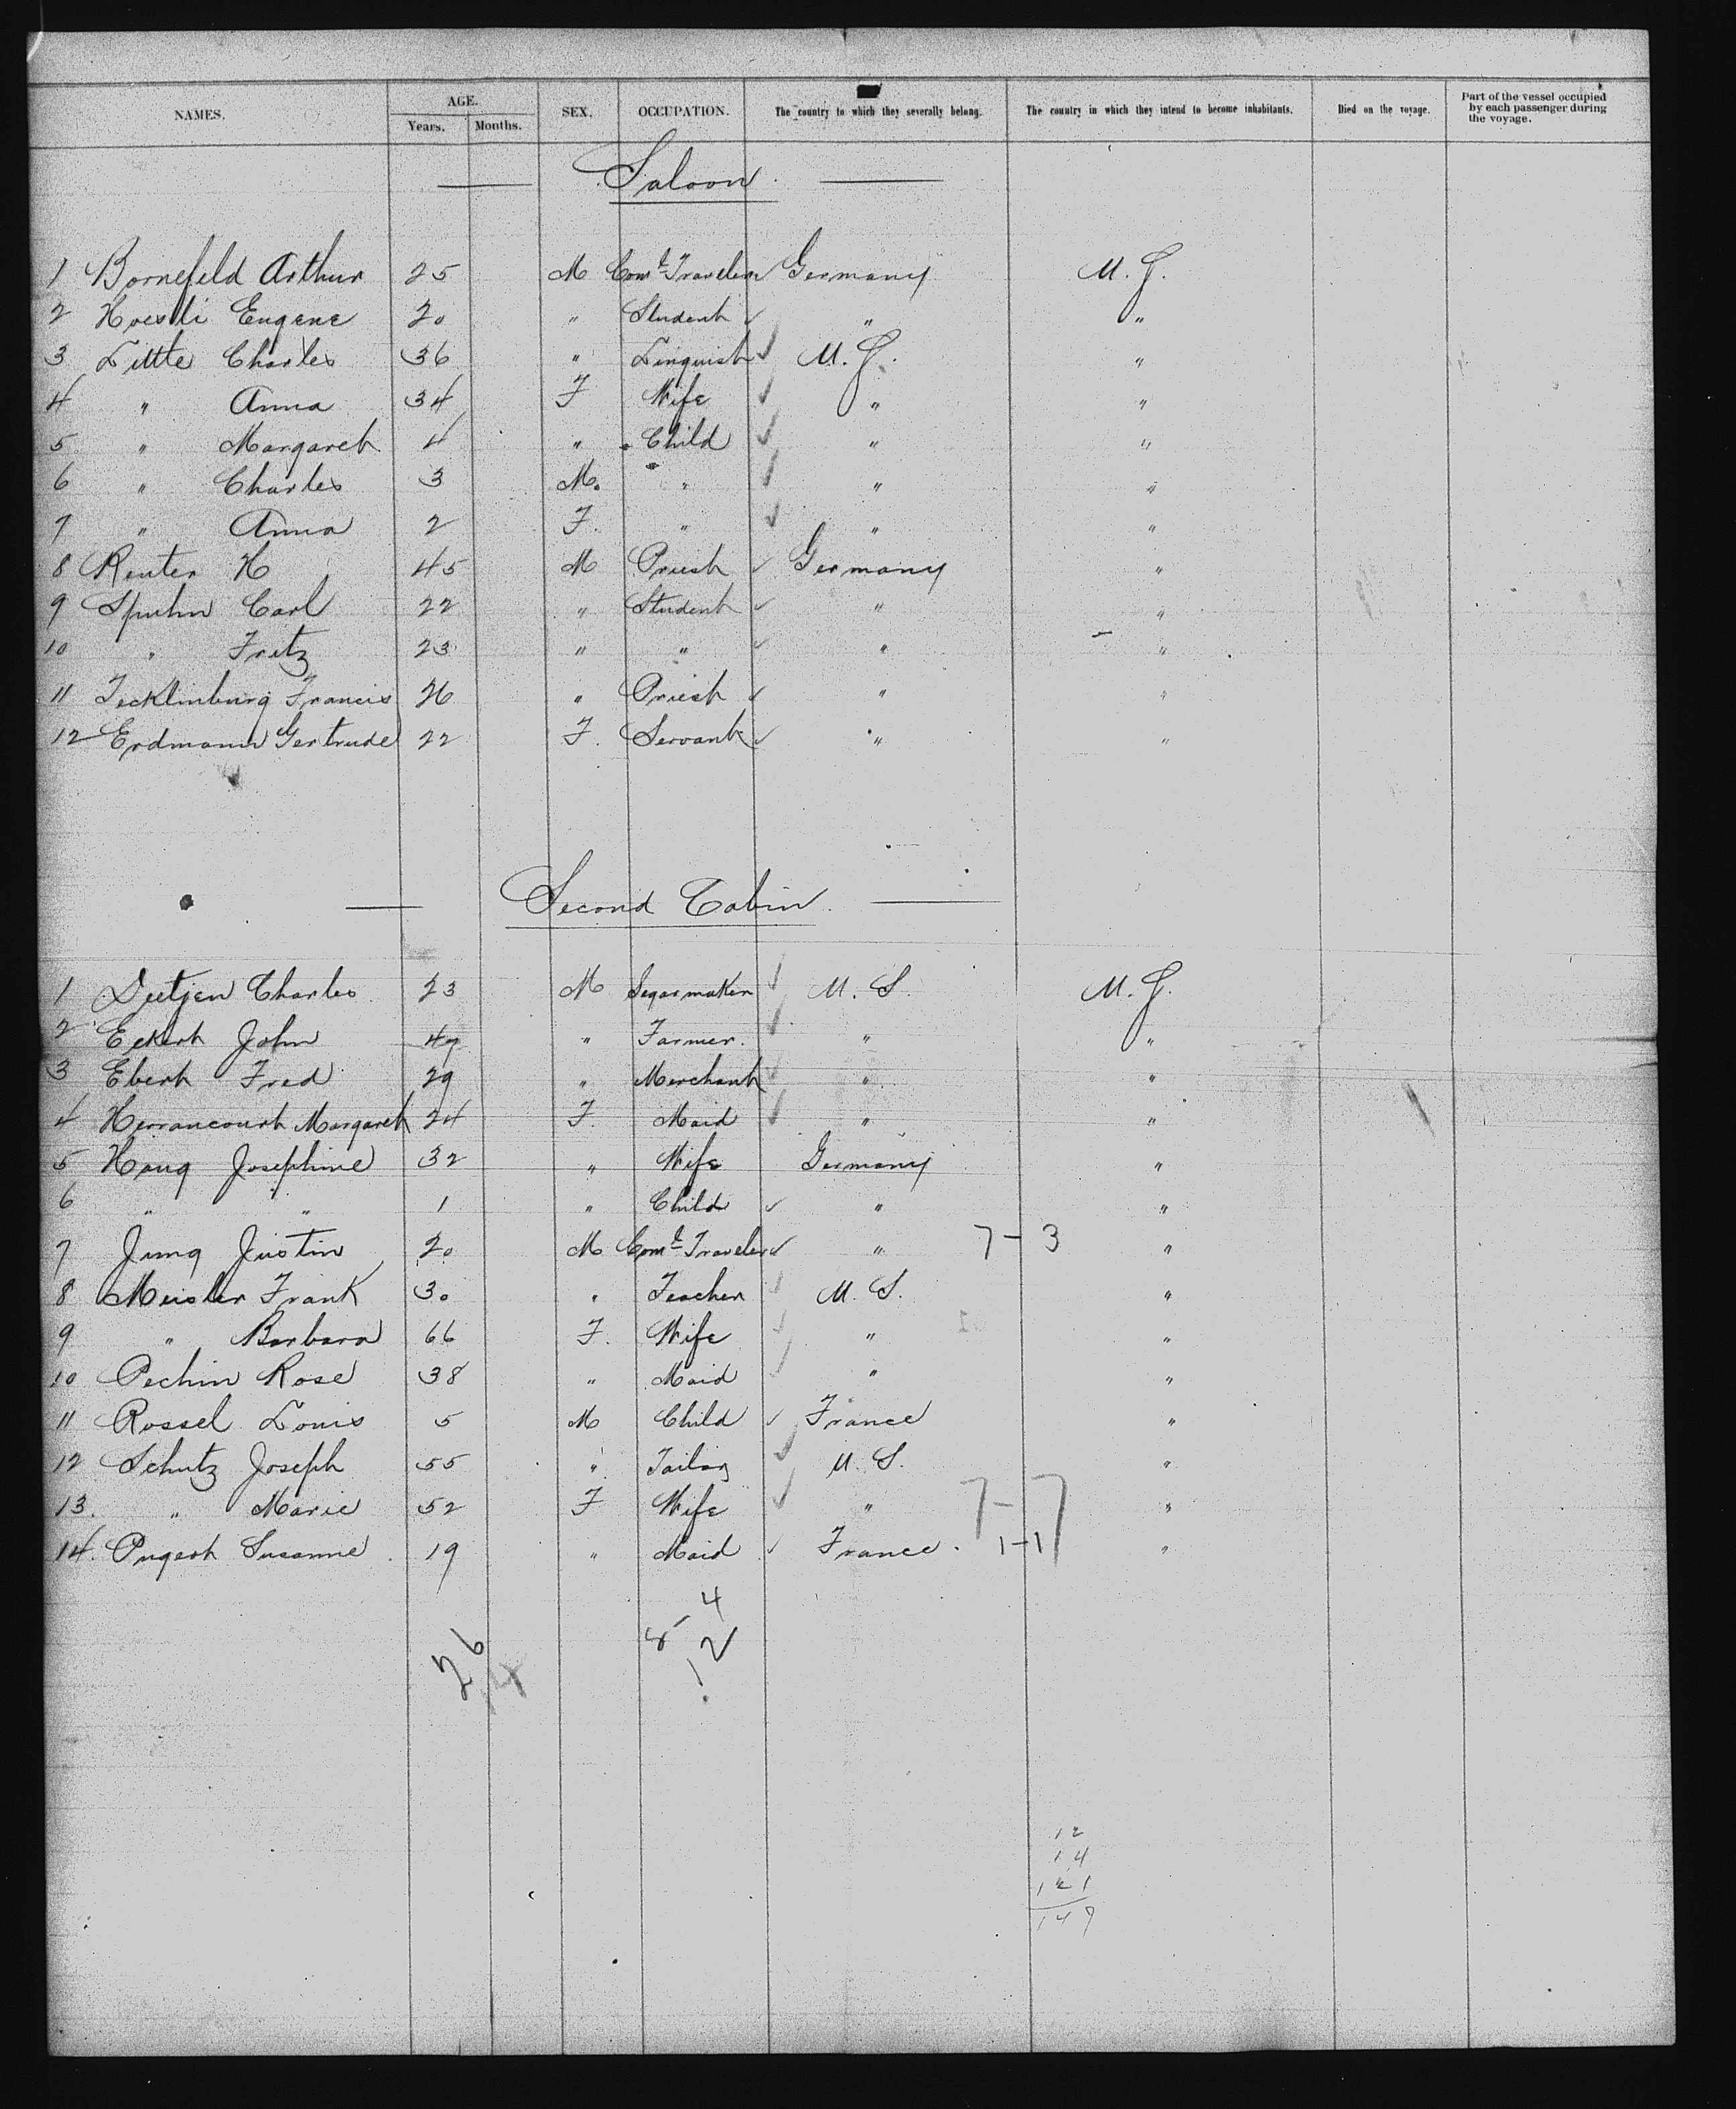 NAMES. AGE. Years. Months. SEX. OCCUPATION. The country to which they severally belong. The country in which they intend to become inhabitants. Died on the voyage. Part of the vessel occupied by each passenger during the voyage.
Saloon.
1 Bornefeld Arthur 25 M Coml Traveler Germany U.S.
2 Eugene 20 " Student " "
3 Little Charles 36 " Linguist U.S. "
4 " Anna 34 F Wife " "
5 " Margareth 4 " Child " "
6 " Charles 3 M. " " "
7 " Anna 2 F. " " "
8 Reuter H 45 M Priest Germany "
9 Spuhn Carl 22 " Student " "
10 " Fritz 23 " " " "
11 Tecklinburg Francis 26 " Priest " "
12 Erdmann Gertrude 22 F. Servant " "
Second Cabin.
1 Deetjen Charles 23 M Segarmaker U.S. U.S.
2 Eckert John " Farmer. " "
3 Ebert Fred 29 " Merchant " "
4 Herrancourt Margareth 24 F. Maid " "
5 Haug Josephine 32 " Wife Germany "
6 " " 1 " Child " "
7 Jung Justin 20 M Coml Traveler " 7-3 "
8 Meisler Frank 30 " Teacher U.S. "
9 " Barbara 66 F. Wife " "
10 Pechin Rose 38 " Maid " "
11 Rossel Louis 5 M Child France "
12 Schutz Joseph 55 " Tailor U.S. "
13. " Marie 52 F Wife " 7-7 "
14. Pugeot Susanne 19 " Maid France. 1-1 "
4
26
12
14
121
149